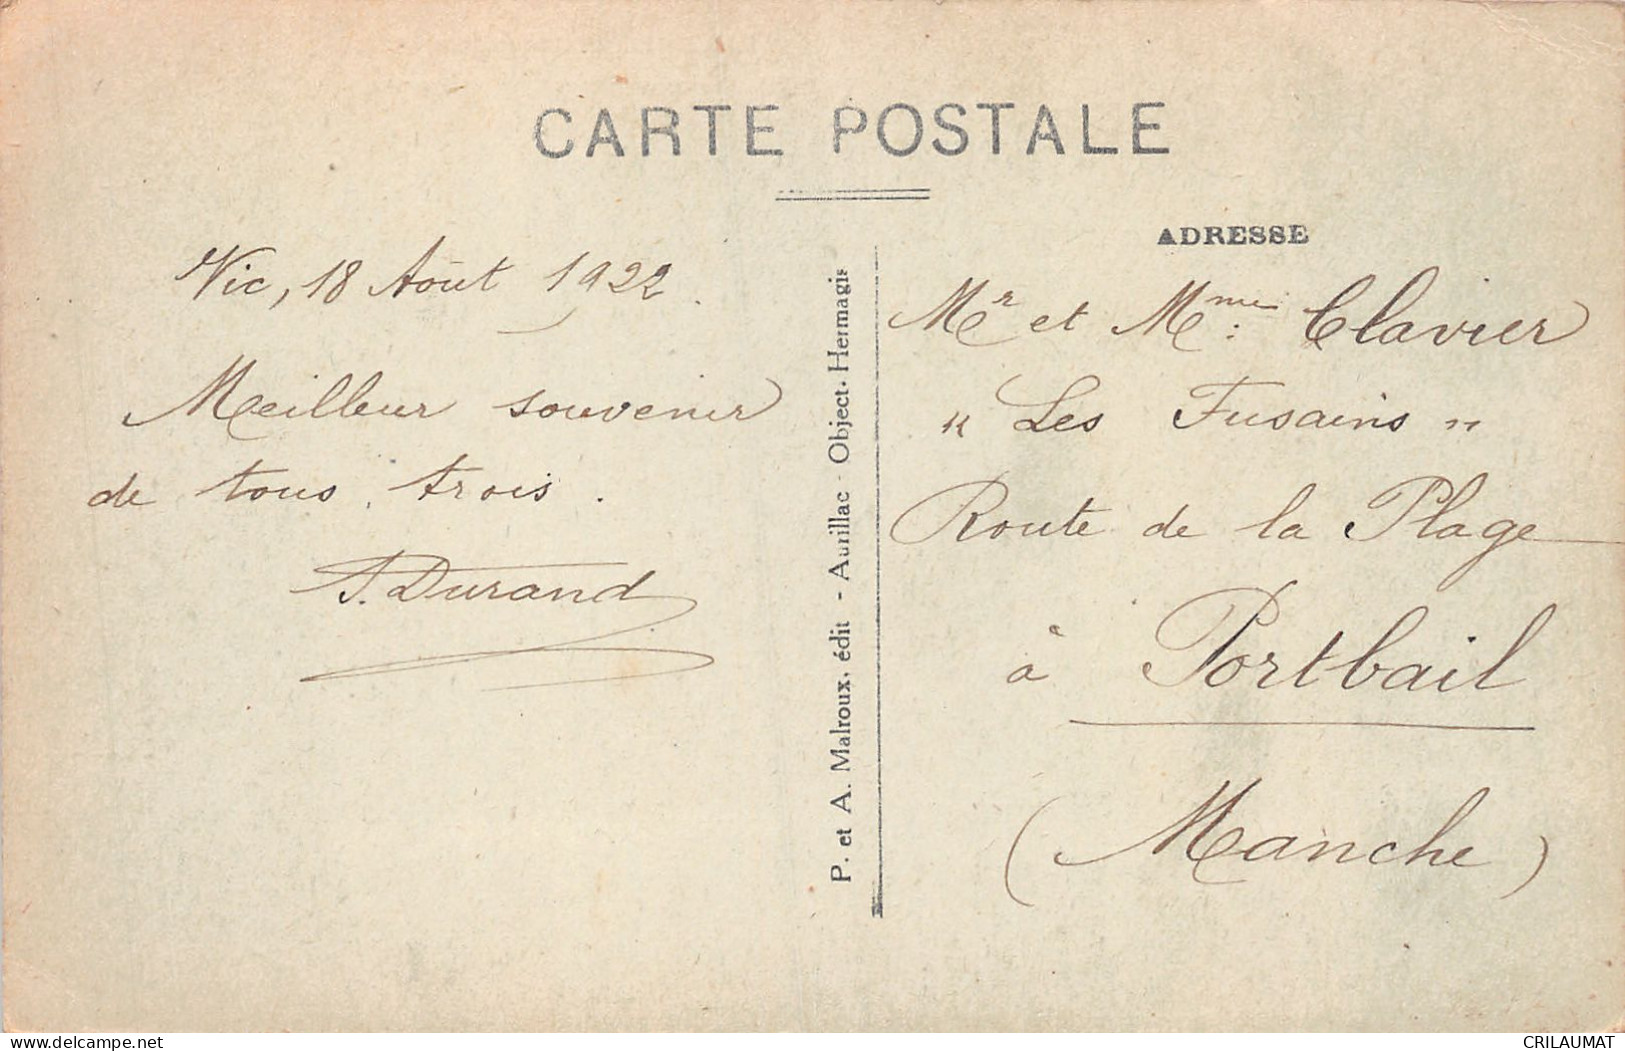 CARTE POSTALE
Vic, 18 Août 1922.
Meilleur souvenir
de tous trois.
J. Durand
P. et A. Malroux, édit - Aurillac - Object. Hermagis
ADRESSE
Mr et Mme: Clavier
"Les Fusains"
Route de la Plage
à Portbail
(Manche)
delcampe.net
CRILAUMAT